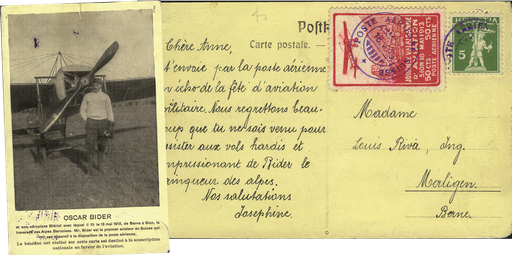 OSCAR BIDER
et son aéroplane Blériot avec lequel il fit le 13 mai 1913, de Berne à Sion, la
traversée des Alpes Bernoises. Mr. Bider est le premier aviateur en Suisse qui
mit son appareil à la disposition de la poste aérienne.
Le bénéfice net réalisé sur cette carte est destiné à la souscription
nationale en faveur de l'aviation.
Carte postale.
Chère Anne,
t'envoie par la poste aérienne
écho de la fête d'aviation
militaire. Nous regrettons beau-
coup que tu ne sois venue pour
assister aux vols hardis et
impressionant de Bider le
vainqueur des alpes.
Nos salutations
Josephine.
HELVETIA
5
50 CTS
POSTE AERIENNE
Madame
Louis Rivà, Ing.
Merligen.
Berne.